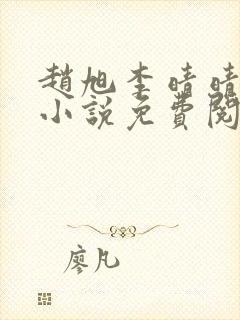 趙旭李晴晴
小說免費閱
廖凡